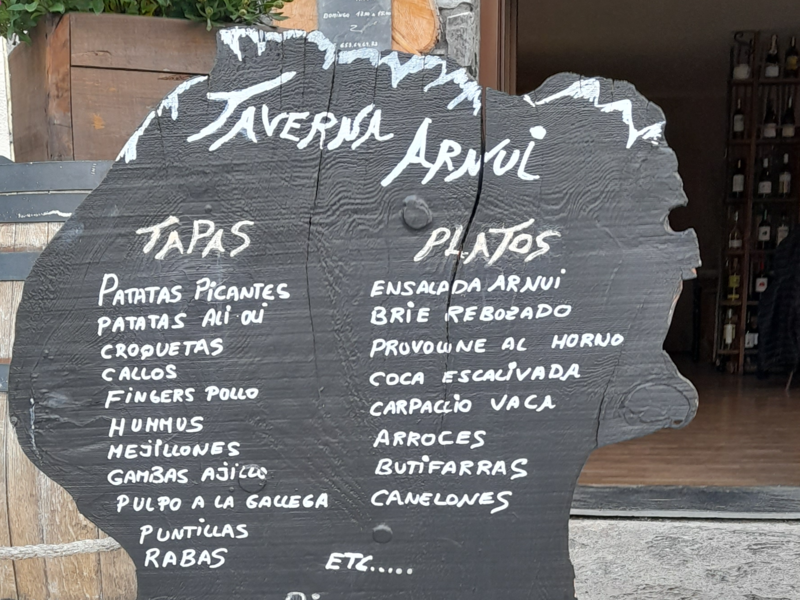 TAVERNA ARNUI
TAPAS
PATATAS PICANTES
PATATAS ALI OLI
CROQUETAS
CALLOS
FINGERS POLLO
HUMMUS
MEJILLONES
GAMBAS AJILLO
PULPO A LA GALLEGA
PUNTILLAS
RABAS
PLATOS
ENSALADA ARNUI
BRIE REBOZADO
PROVOLONE AL HORNO
COCA ESCALIVADA
CARPACCIO VACA
ARROCES
BUTIFARRAS
CANELONES
ETC.....